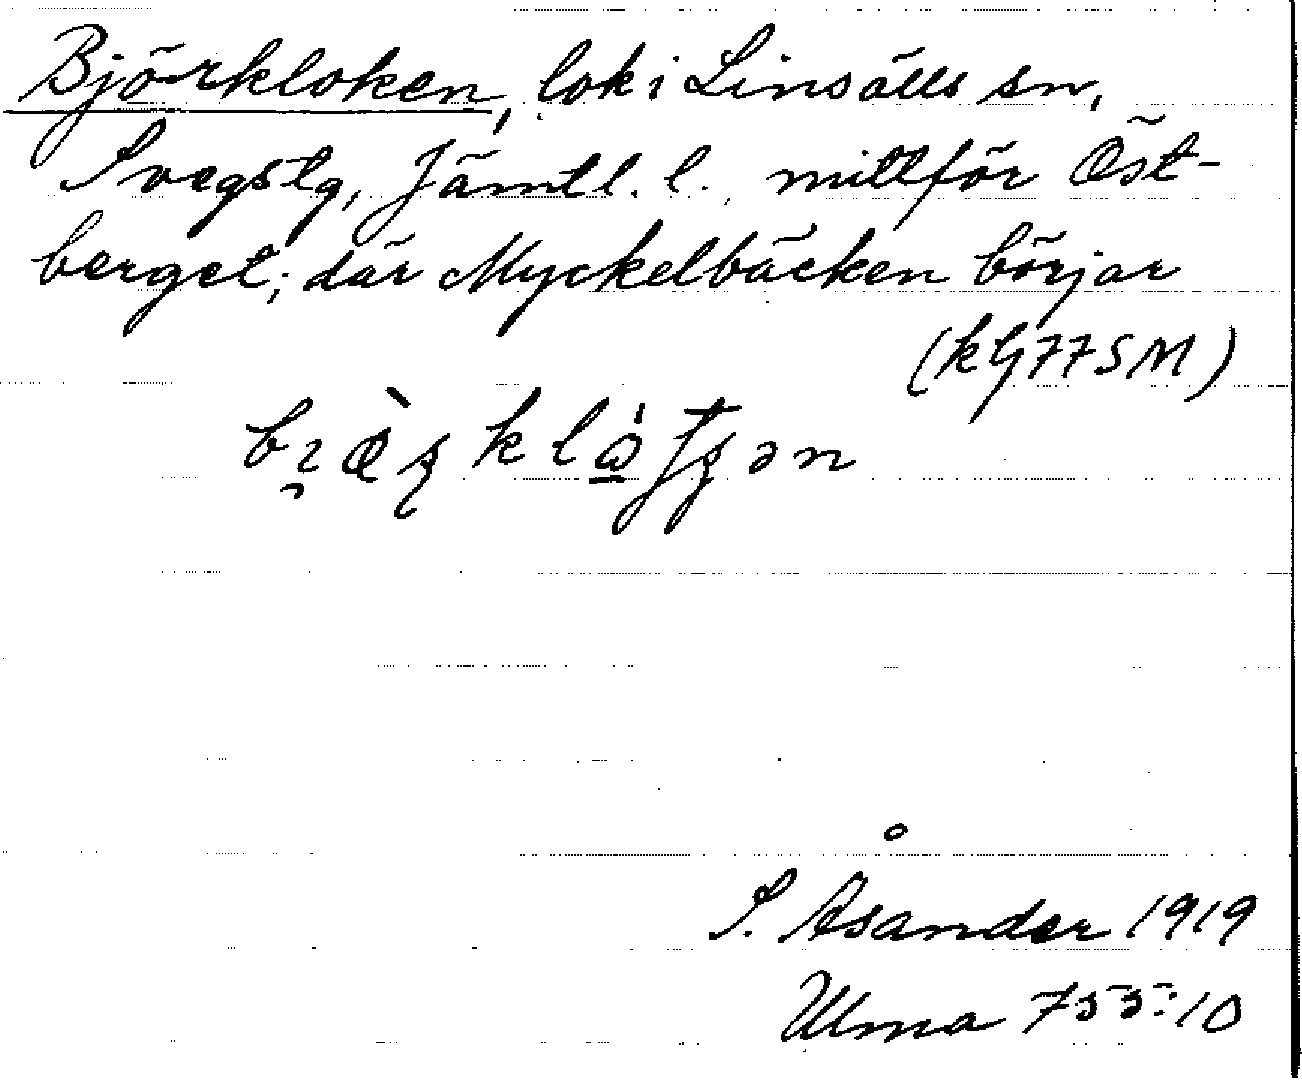 Björkloken, lok i Linsälls sn,
Svegs tg, Jämtl. l. mittför Öst-
berget; där Myckelbäcken börjar
(kG77SM)
S. Åsander 1919
Ulma 755:10